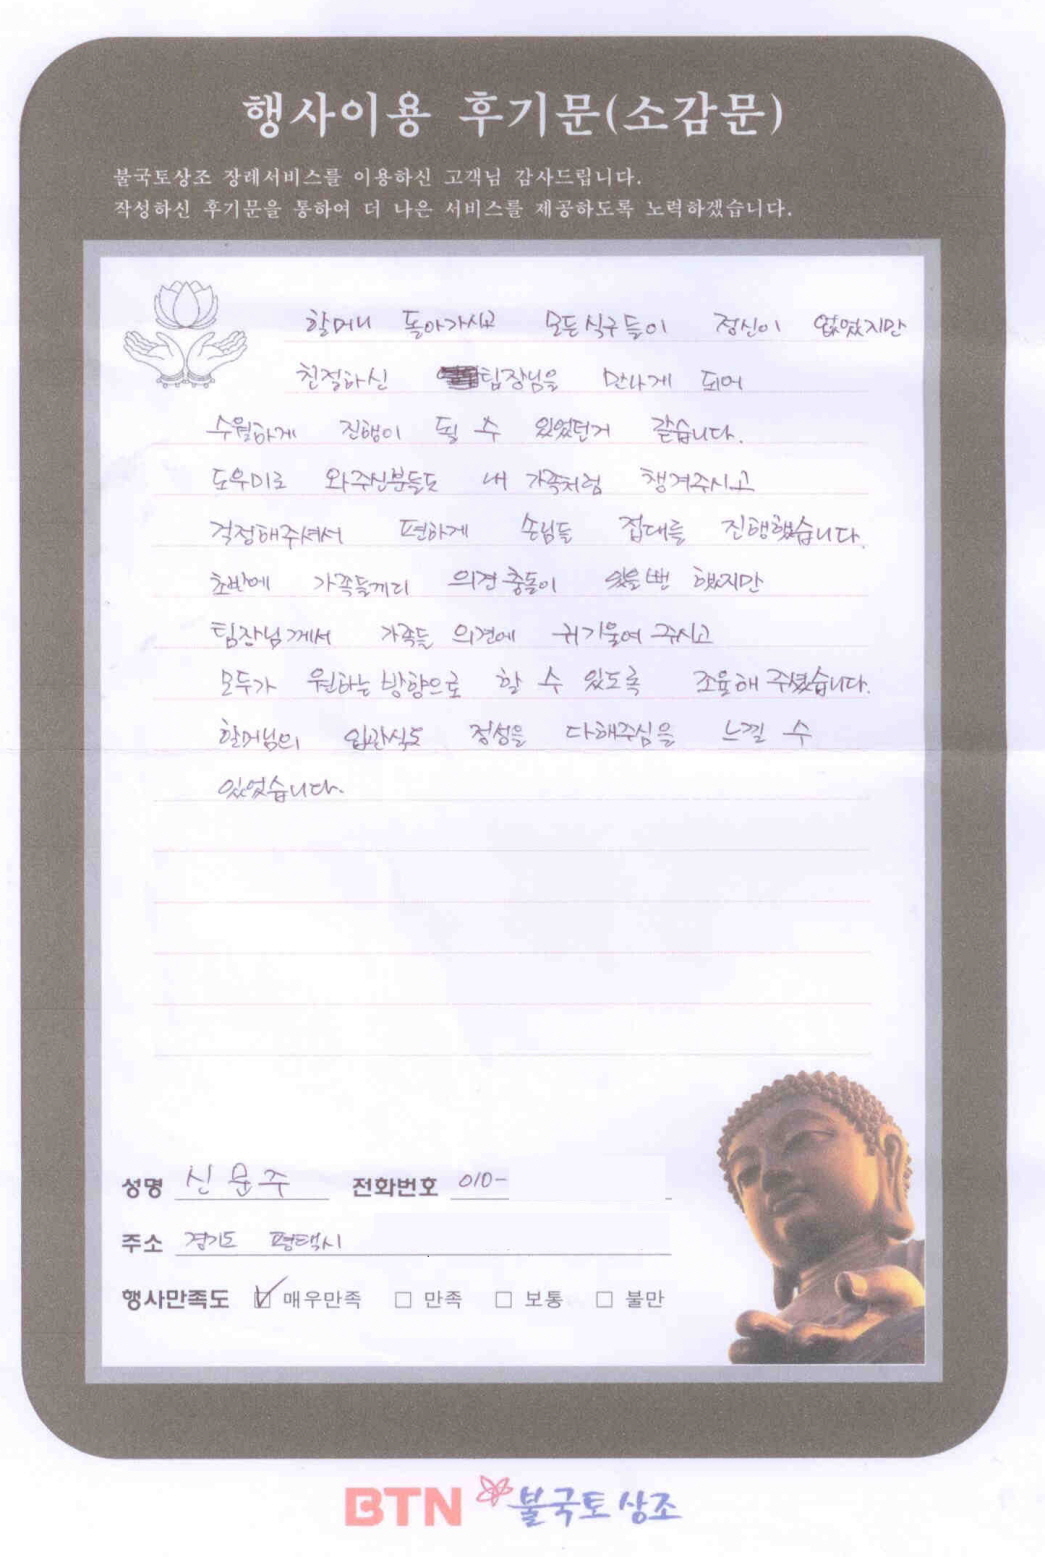 행사이용 후기문(소감문)
불국토상조 장례서비스를 이용하신 고객님 감사드립니다.
작성하신 후기문을 통하여 더 나은 서비스를 제공하도록 노력하겠습니다.
할머니 돌아가시고 모든식구들이 정신이 없었지만
친절하신 팀장님을 만나게 되어
수월하게 진행이 될 수 있었던거 같습니다.
도우미로 와주신분들도 내 가족처럼 챙겨주시고
걱정해주셔서 편하게 손님들 접대를 진행했습니다.
초반에 가족들끼리 의견충돌이 있을뻔 했지만
팀장님께서 가족들 의견에 귀기울여 주시고
모두가 원하는 방향으로 할 수 있도록 조율해 주셨습니다.
할머님의 입관식도 정성을 다해주심을 느낄 수
있었습니다.
성명 신문주 전화번호 010-
주소 경기도 평택시
행사만족도 ☑ 매우만족 □ 만족 □ 보통 □ 불만
BTN 불국토상조